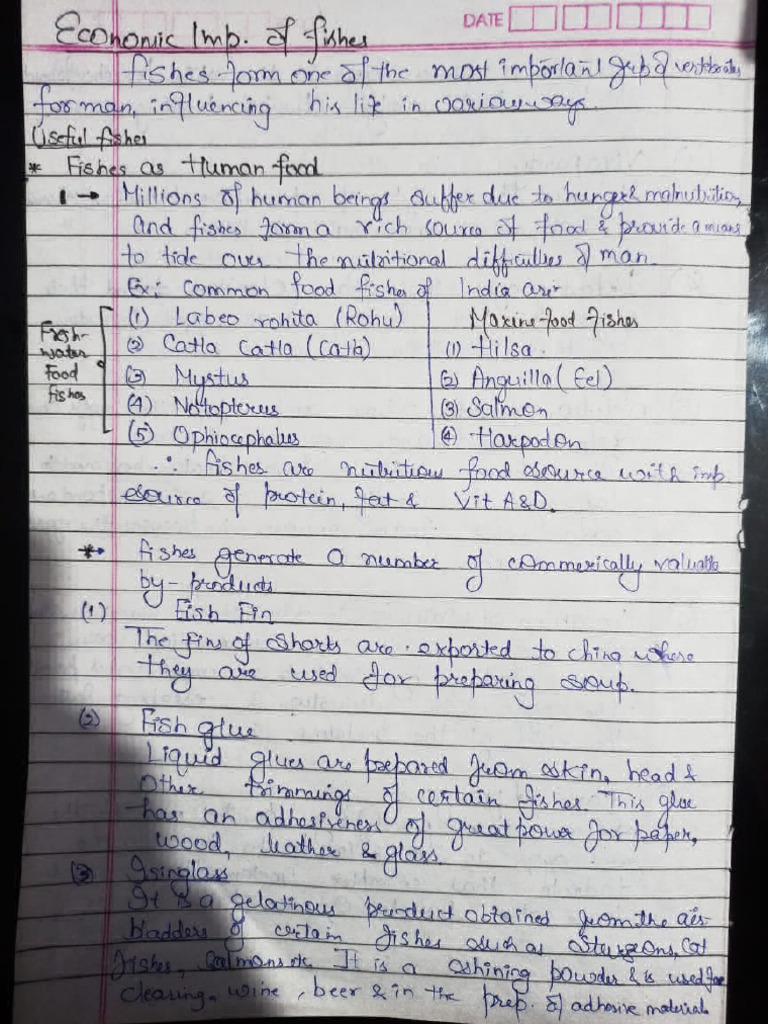 DATE
Economic Imp. of fishes
fishes form one of the most important grp of vertebrates
for man, influencing his life in various ways.
Useful fishes
* Fishes as Human food
1 → Millions of human beings suffer due to hunger & malnutrition,
and fishes form a rich source of food & provide a means
to tide over the nutritional difficulties of man.
Ex: Common food fishes of India are:-
Fresh-water Food fishes
(1) Labeo rohita (Rohu)
(2) Catla Catla (Catla)
(3) Mystus
(4) Notopterus
(5) Ophiocephalus
Marine food fishes
(1) Hilsa.
(2) Anguilla (Eel)
(3) Salmon
(4) Harpodon
∴ fishes are nutritious food source with imp
source of protein, fat & Vit A&D.
*→ fishes generate a number of commerically valuable
by-products
(1) Fish Fin
The fins of sharks are exported to china where
they are used for preparing soup.
(2) Fish glue
Liquid glues are prepared from skin, head &
other trimmings of certain fishes. This glue
has an adhesiveness of great power for paper,
wood, leather & glass.
(3) Isinglass
It is a gelatinous product obtained from the air-
bladders of certain fishes such as Sturgeons, Cat
fishes, Salmons etc. It is a shining powder & is used for
clearing wine, beer & in the prep. of adhesive material.